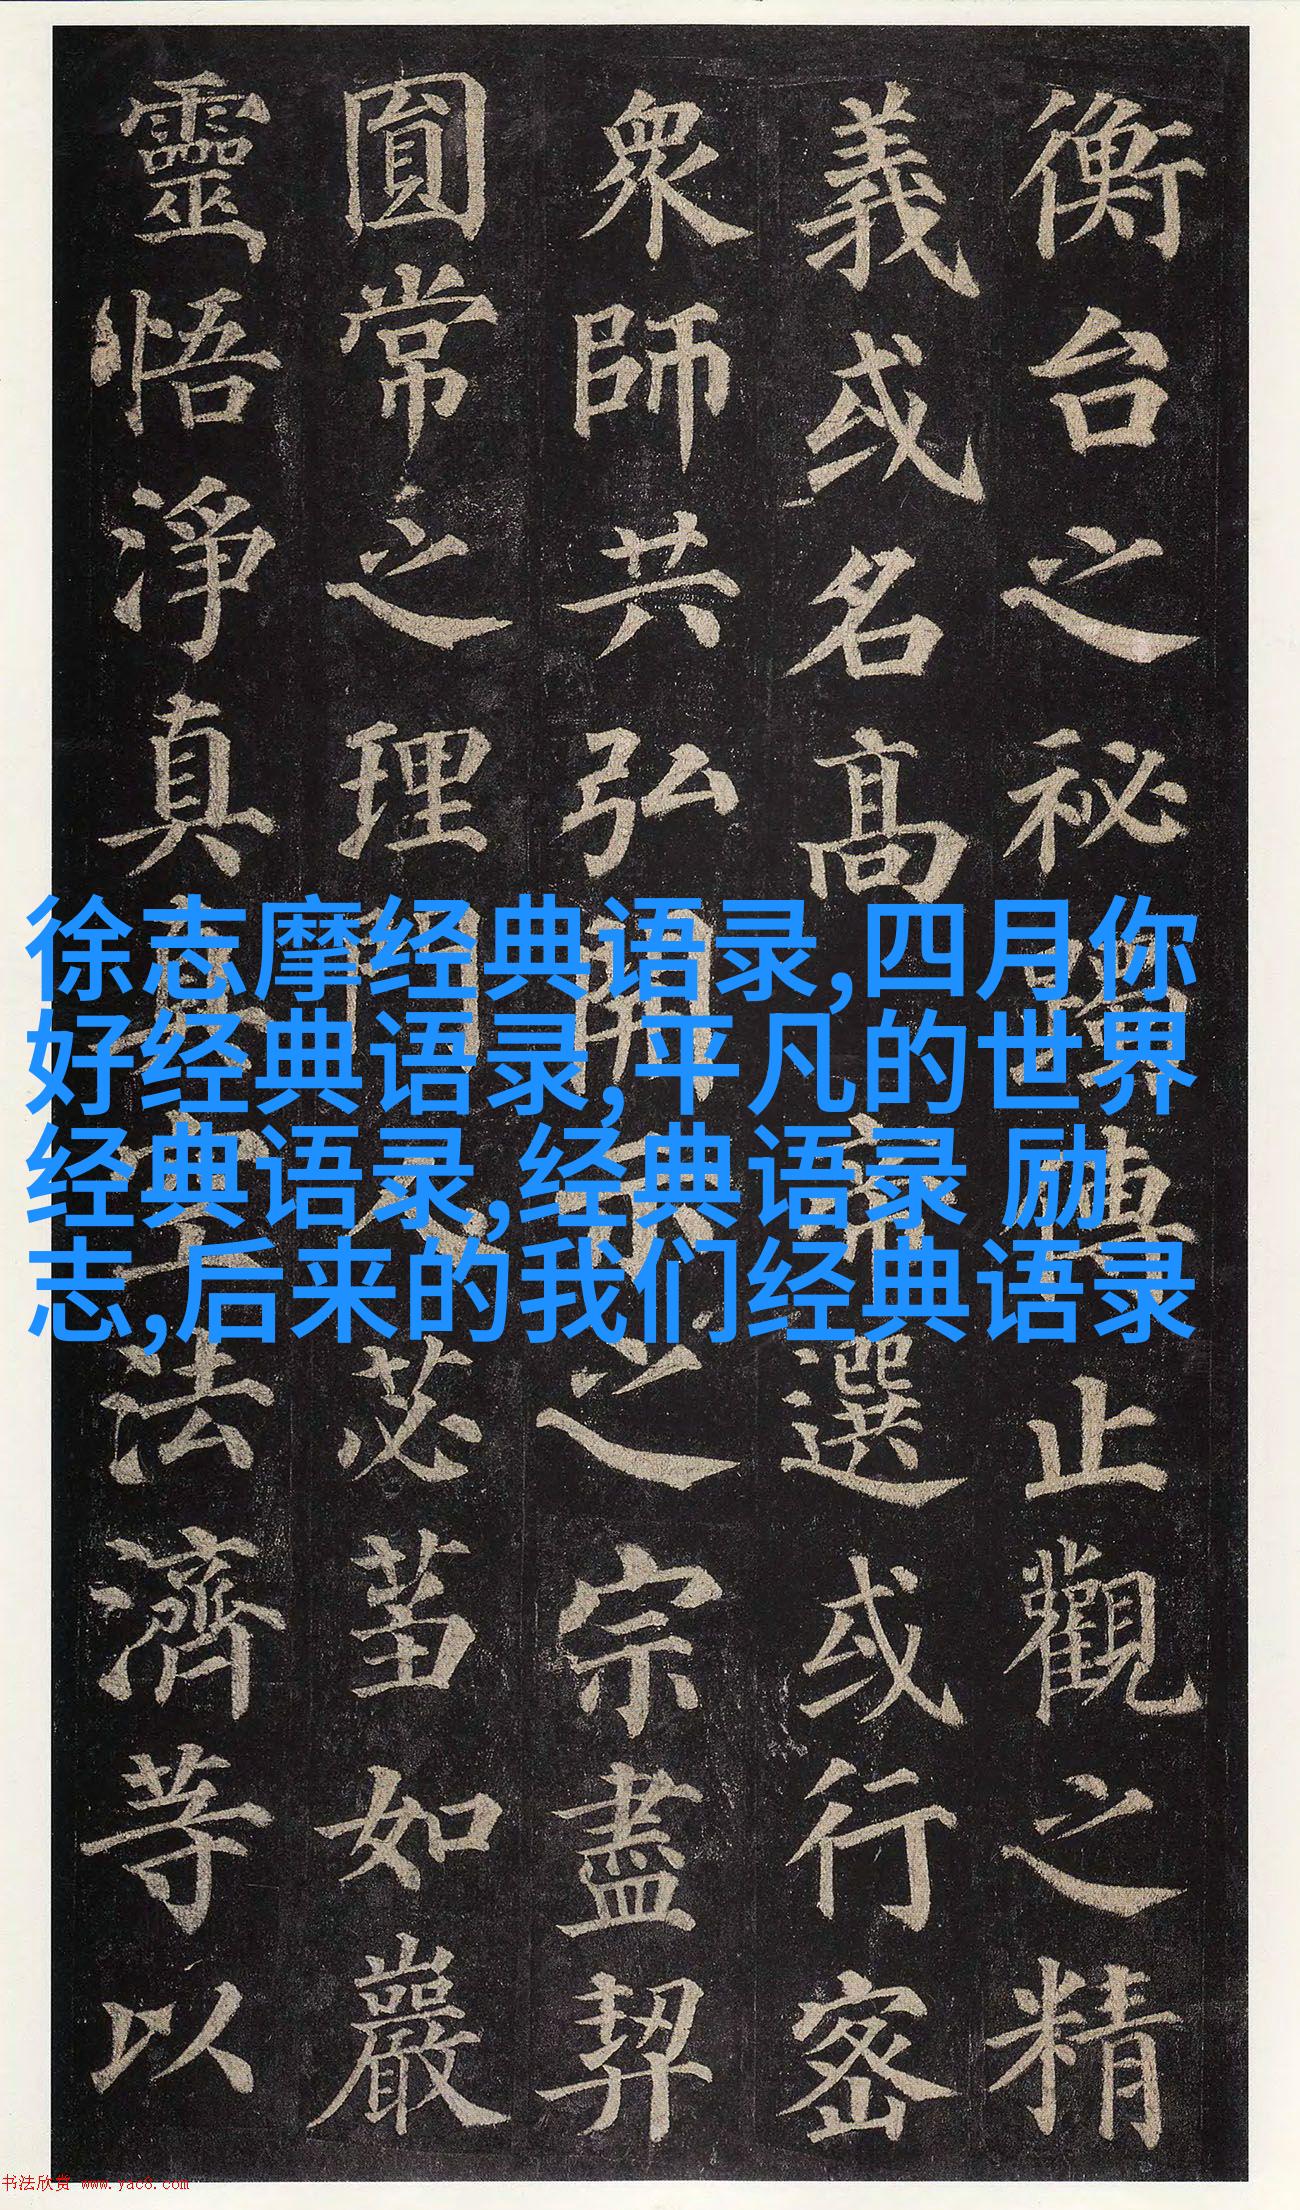 衡台之秘傳止觀之精
義或名高帝選或行密
衆師共弘開示之宗盡契
圓常之理門人苾蒭如巖
靈悟淨真真空法濟等以
徐志摩经典语录,四月你
好经典语录,平凡的世界
经典语录,经典语录 励
志,后来的我们经典语录
书法欣赏 www.yac8.com